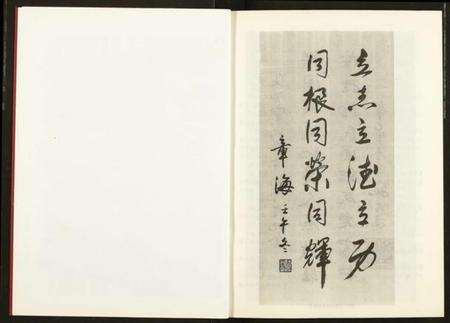 立志立德立功
同根同荣同辉
章海 壬午冬